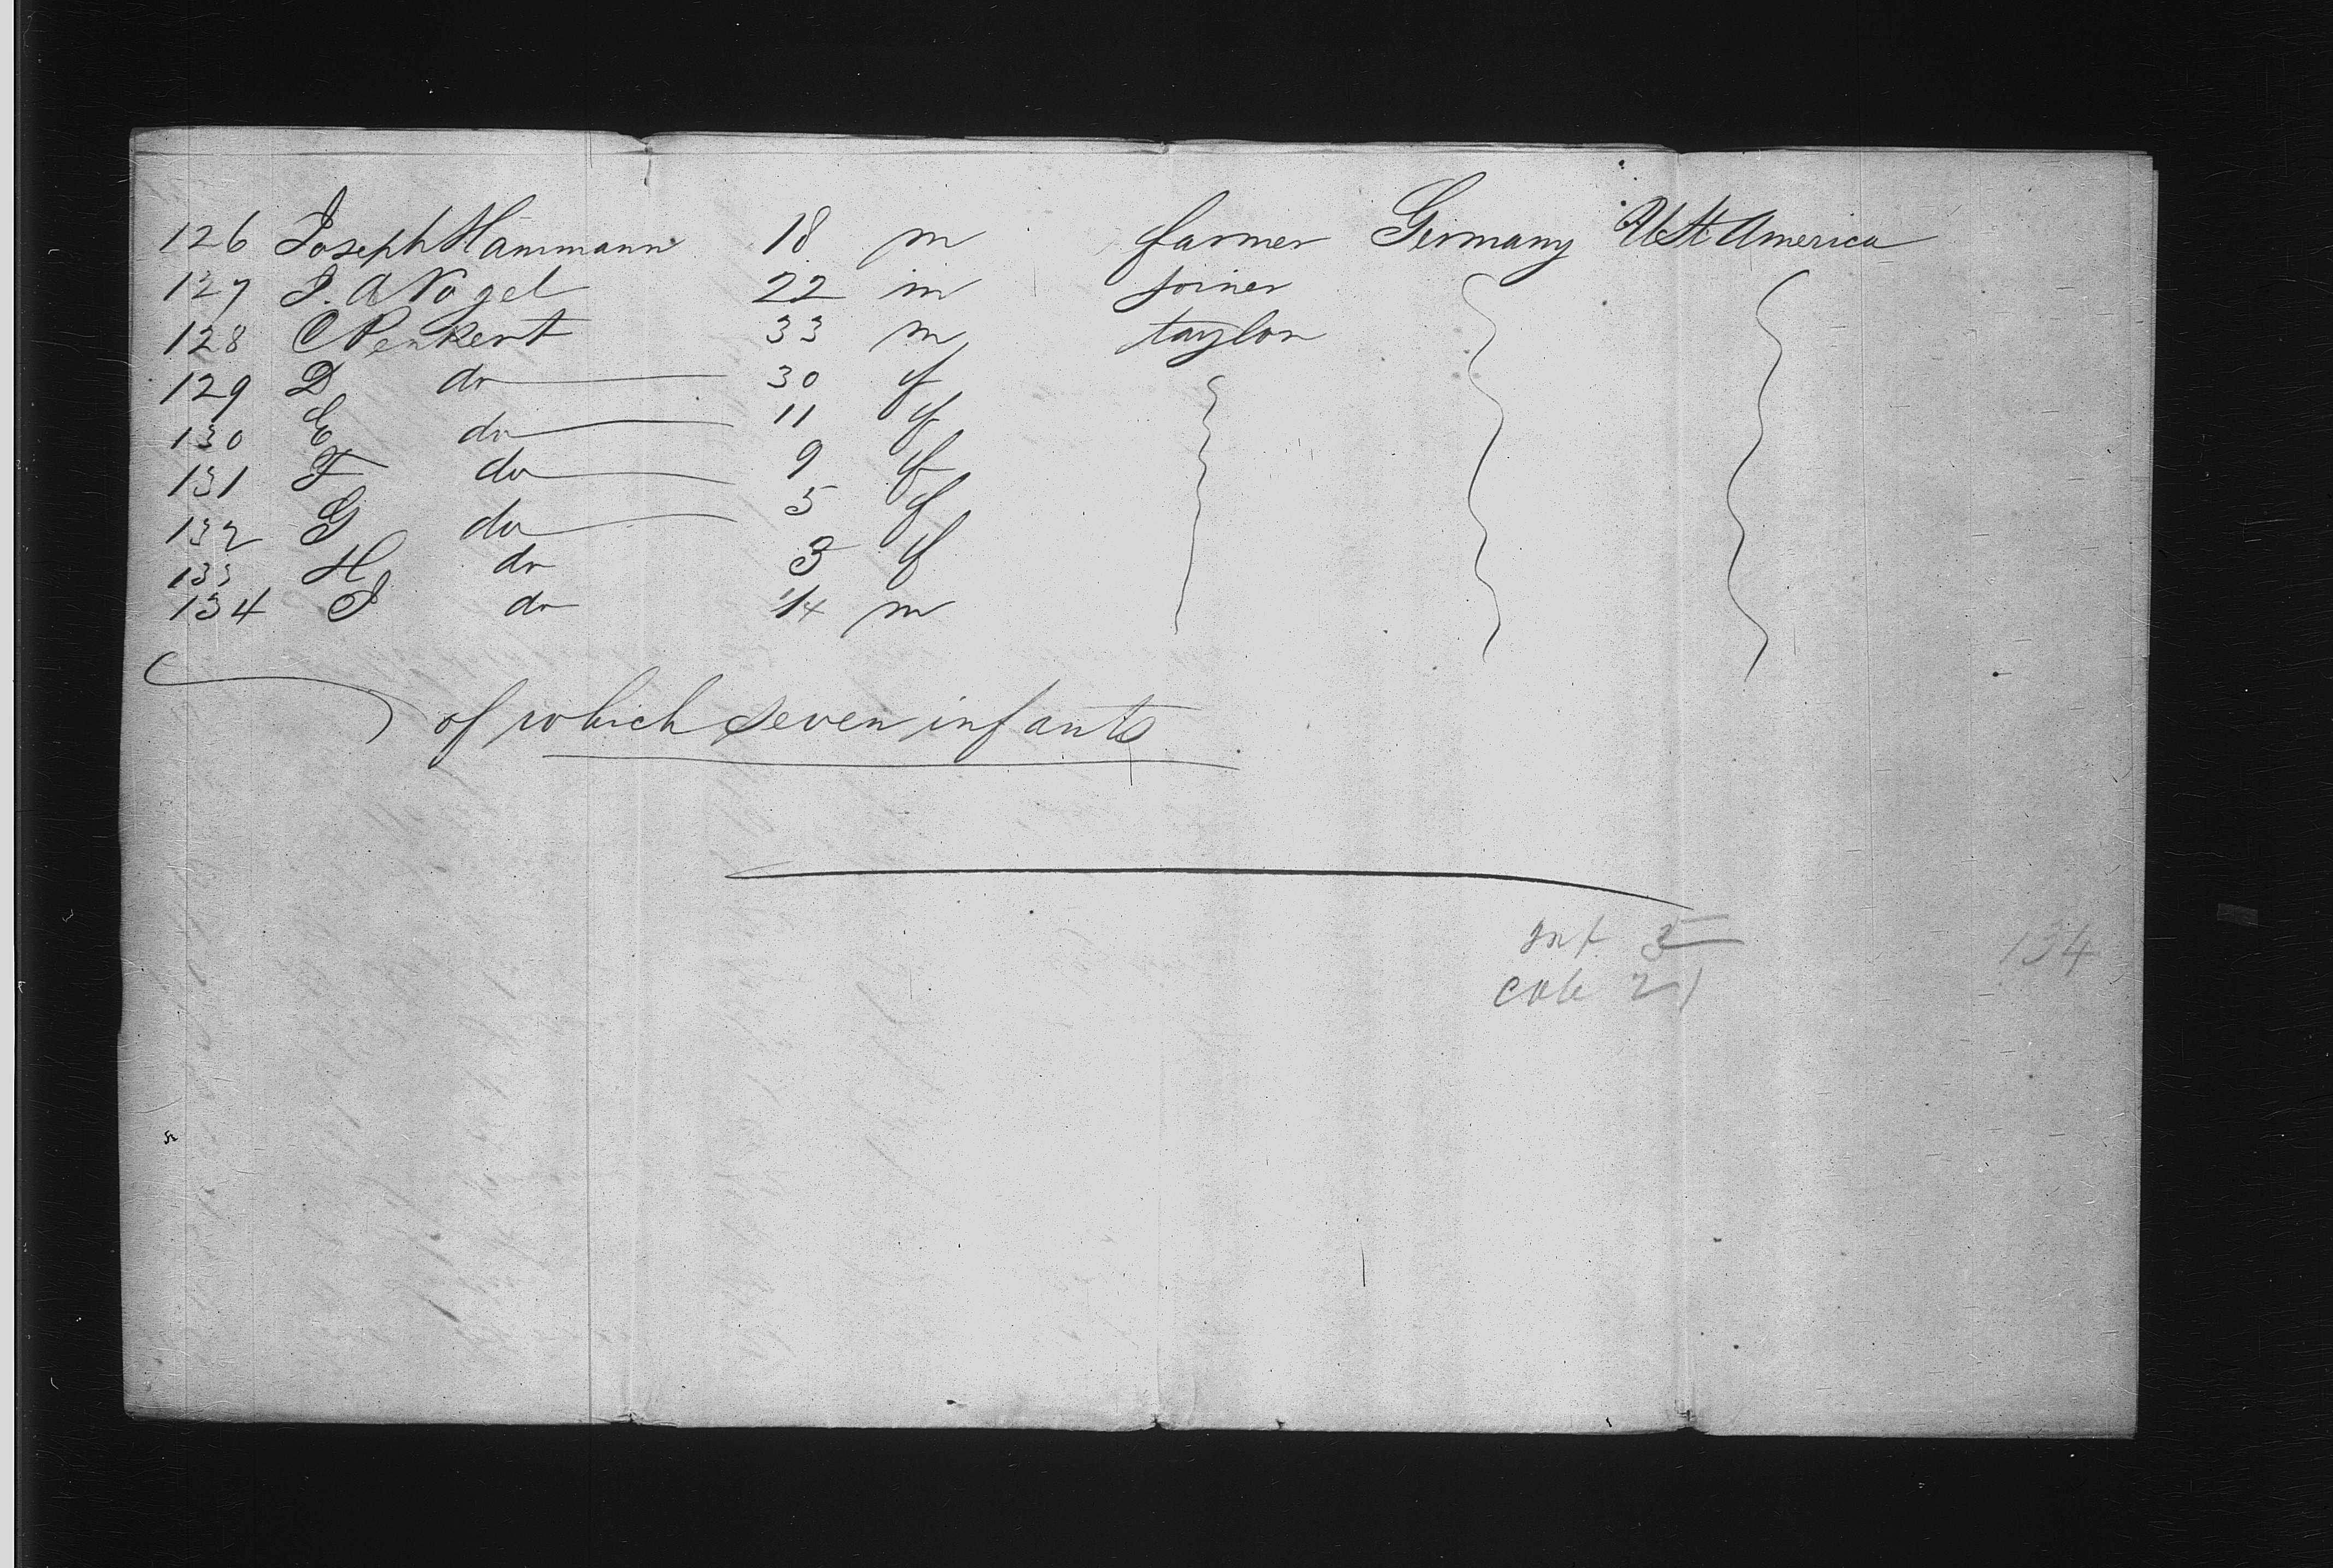 126 Joseph Hammann 18 m farmer Germany U St. America
127 J. A Nogel 22 m joiner
128 C Penkert 33 m taylor
129 D do 30 f
130 E do 11 f
131 F do 9 f
132 G do 5 f
133 H do 3 f
134 J do 1/4 m
of which seven infants
134